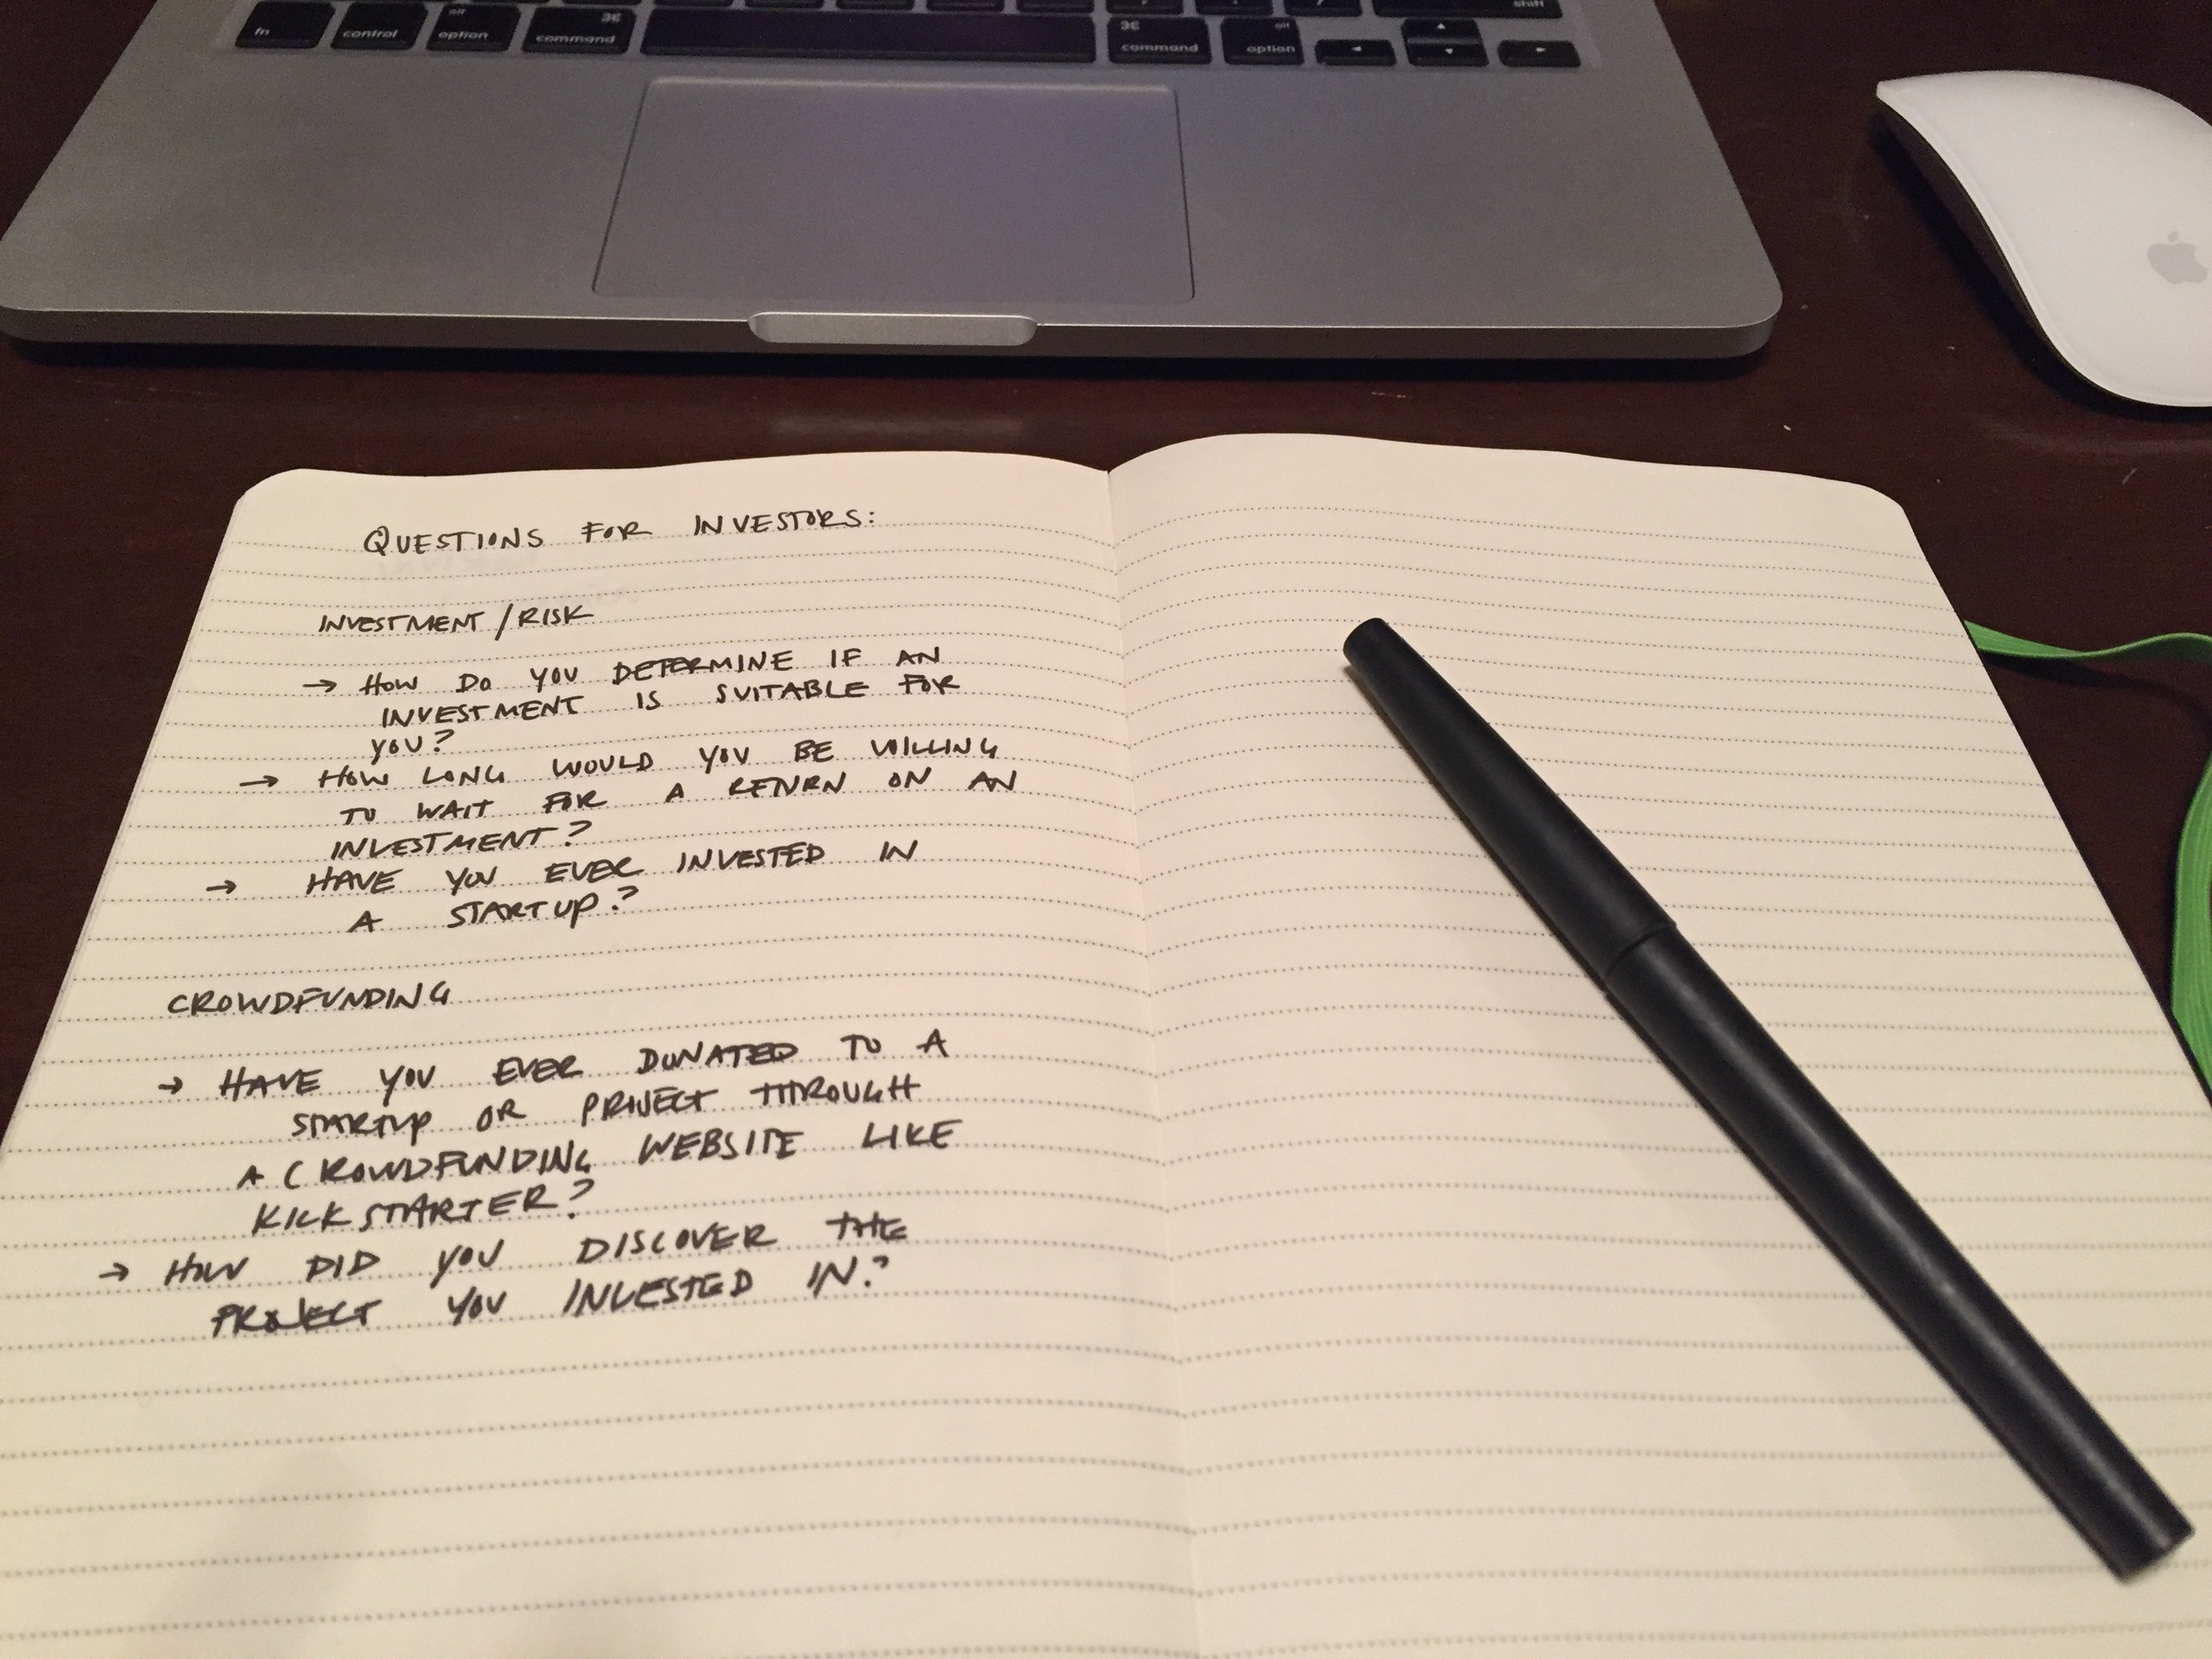 shift
fn control alt option ⌘ command ⌘ command alt option
QUESTIONS FOR INVESTORS:
INVESTMENT/RISK
→ HOW DO YOU DETERMINE IF AN
INVESTMENT IS SUITABLE FOR
YOU?
→ HOW LONG WOULD YOU BE WILLING
TO WAIT FOR A RETURN ON AN
INVESTMENT?
→ HAVE YOU EVER INVESTED IN
A STARTUP?
CROWDFUNDING
→ HAVE YOU EVER DONATED TO A
STARTUP OR PROJECT THROUGH
A CROWDFUNDING WEBSITE LIKE
KICKSTARTER?
→ HOW DID YOU DISCOVER THE
PROJECT YOU INVESTED IN?